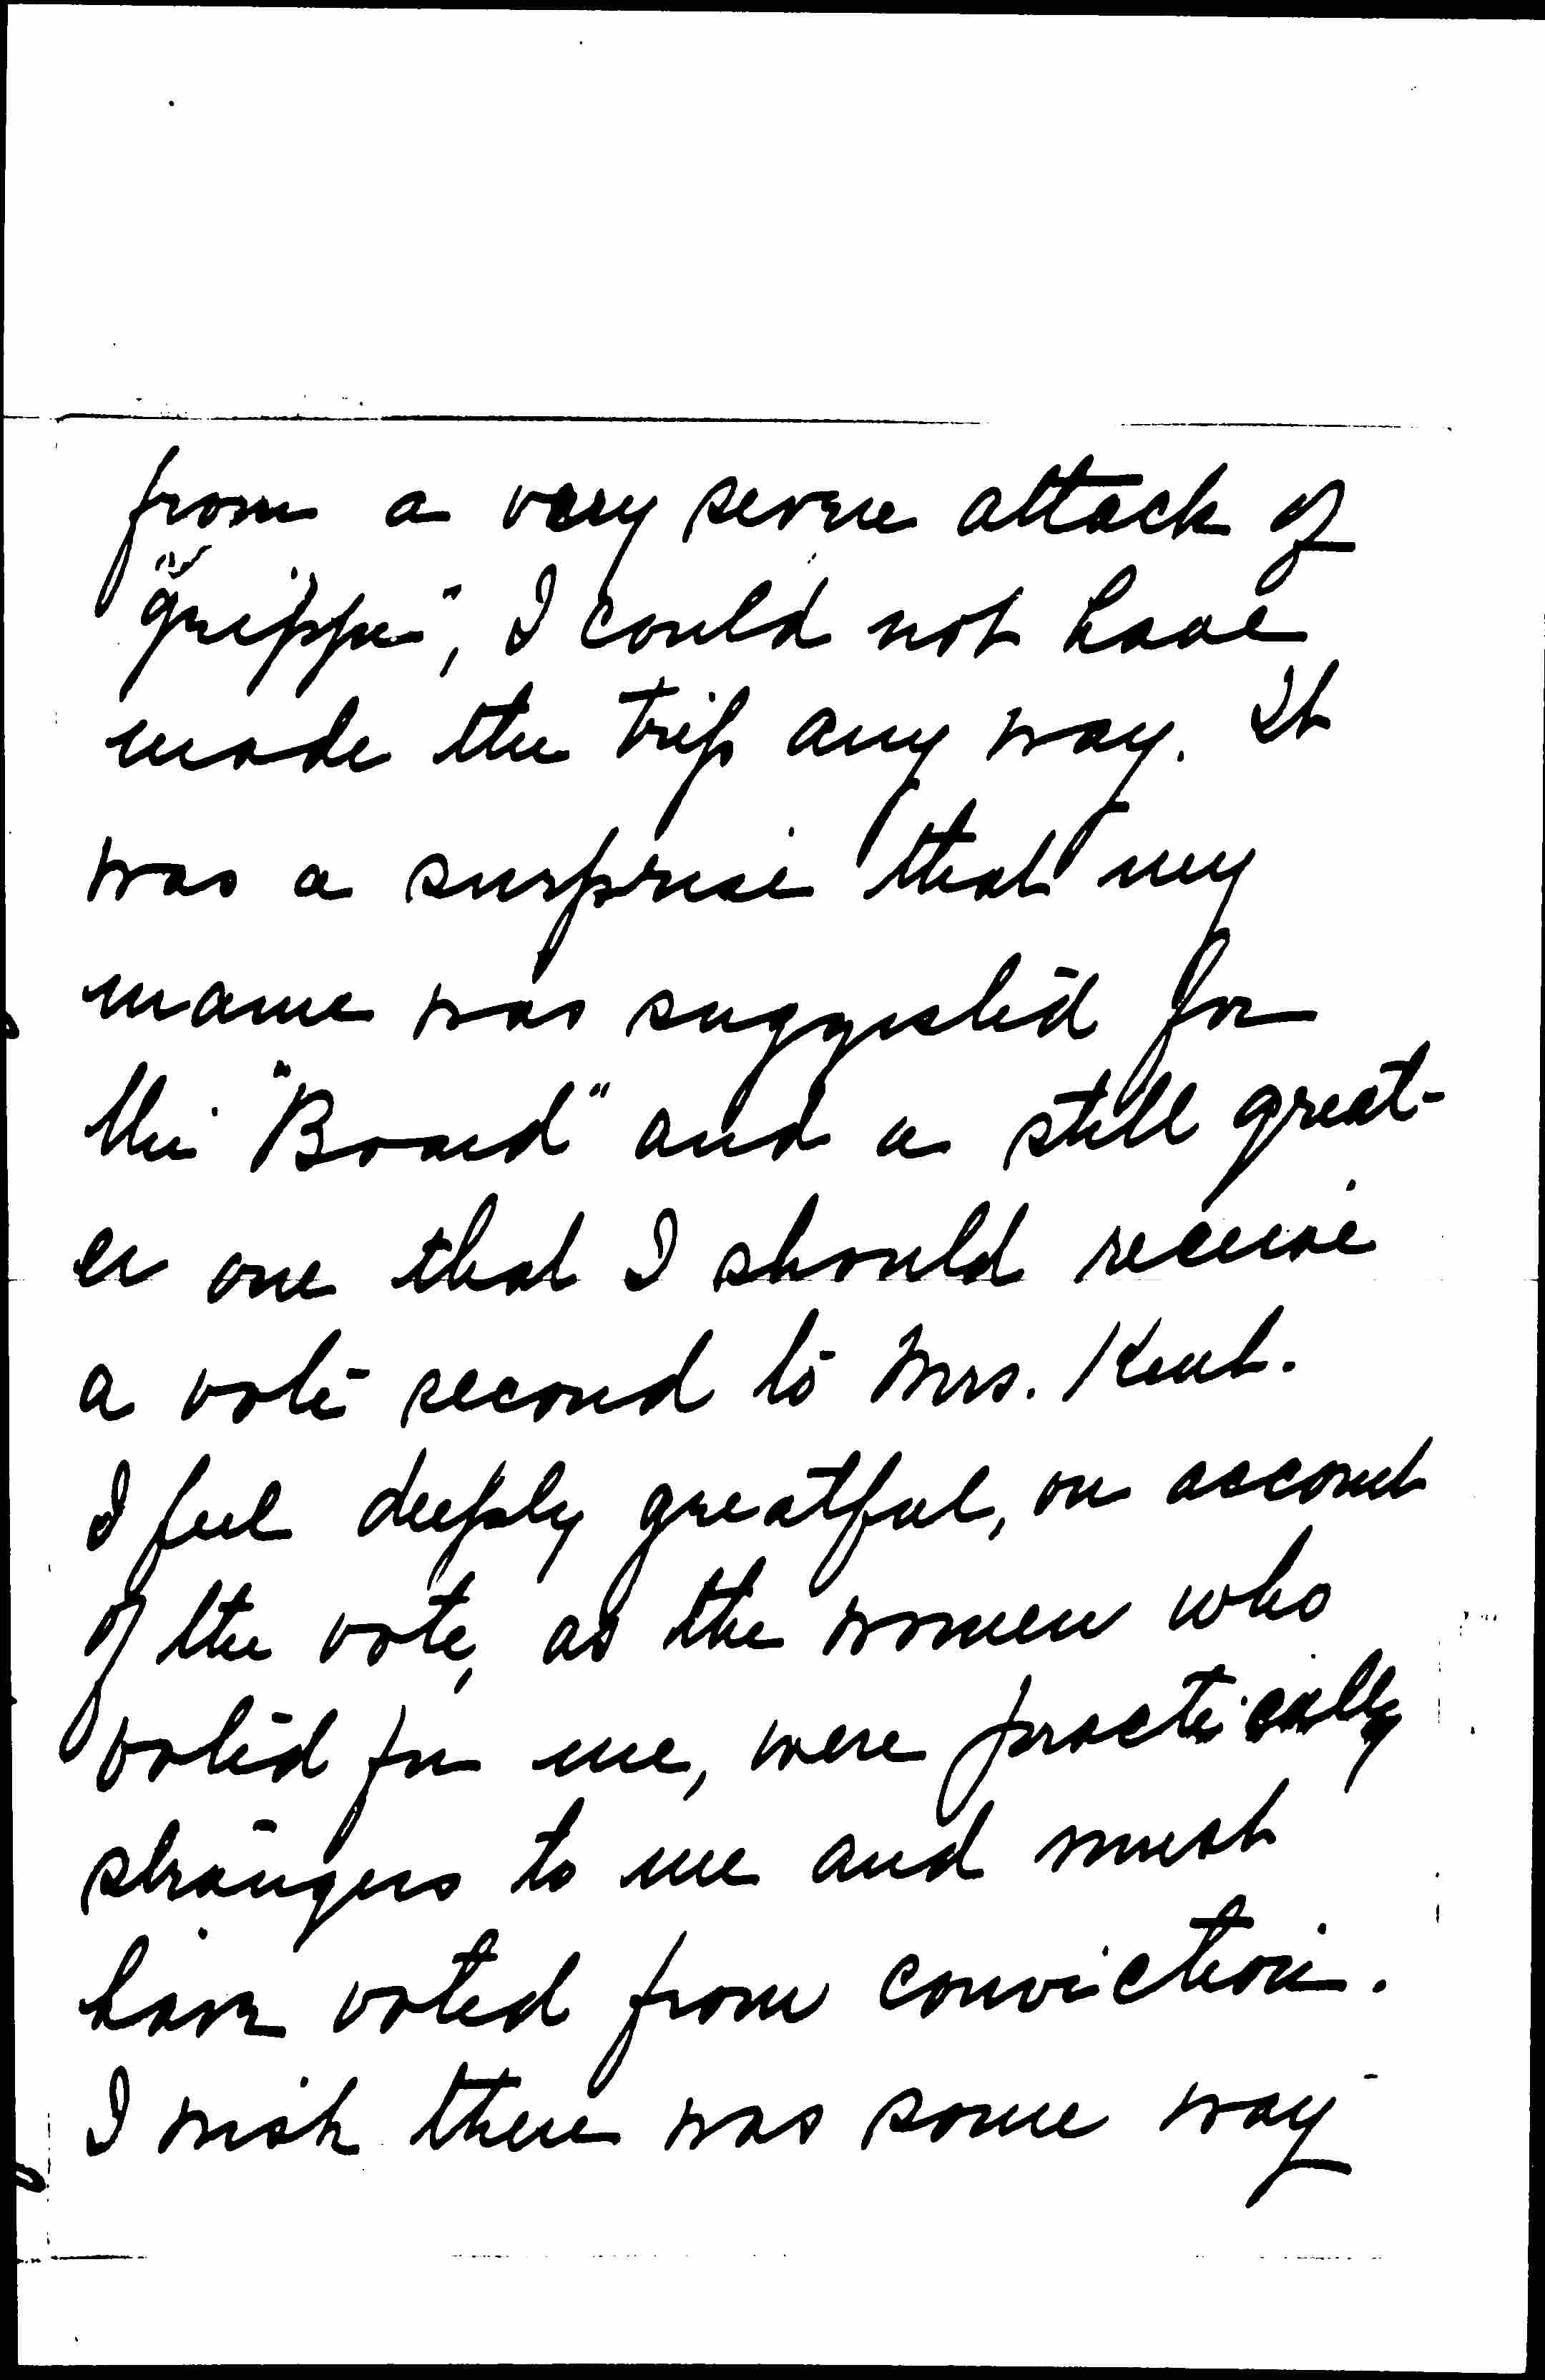 from a very severe attack of
"grippe", I could not have
made the trip any way. It
was a surprise that my
name was suggested for
the "Board" and a still great-
er one that I should receive
a vote second to Mrs. Kent.
I feel deeply greatful, on account
of the vote, as the women who
voted for me, were practically
strangers to me and must
have voted from conviction.
I wish there was some way